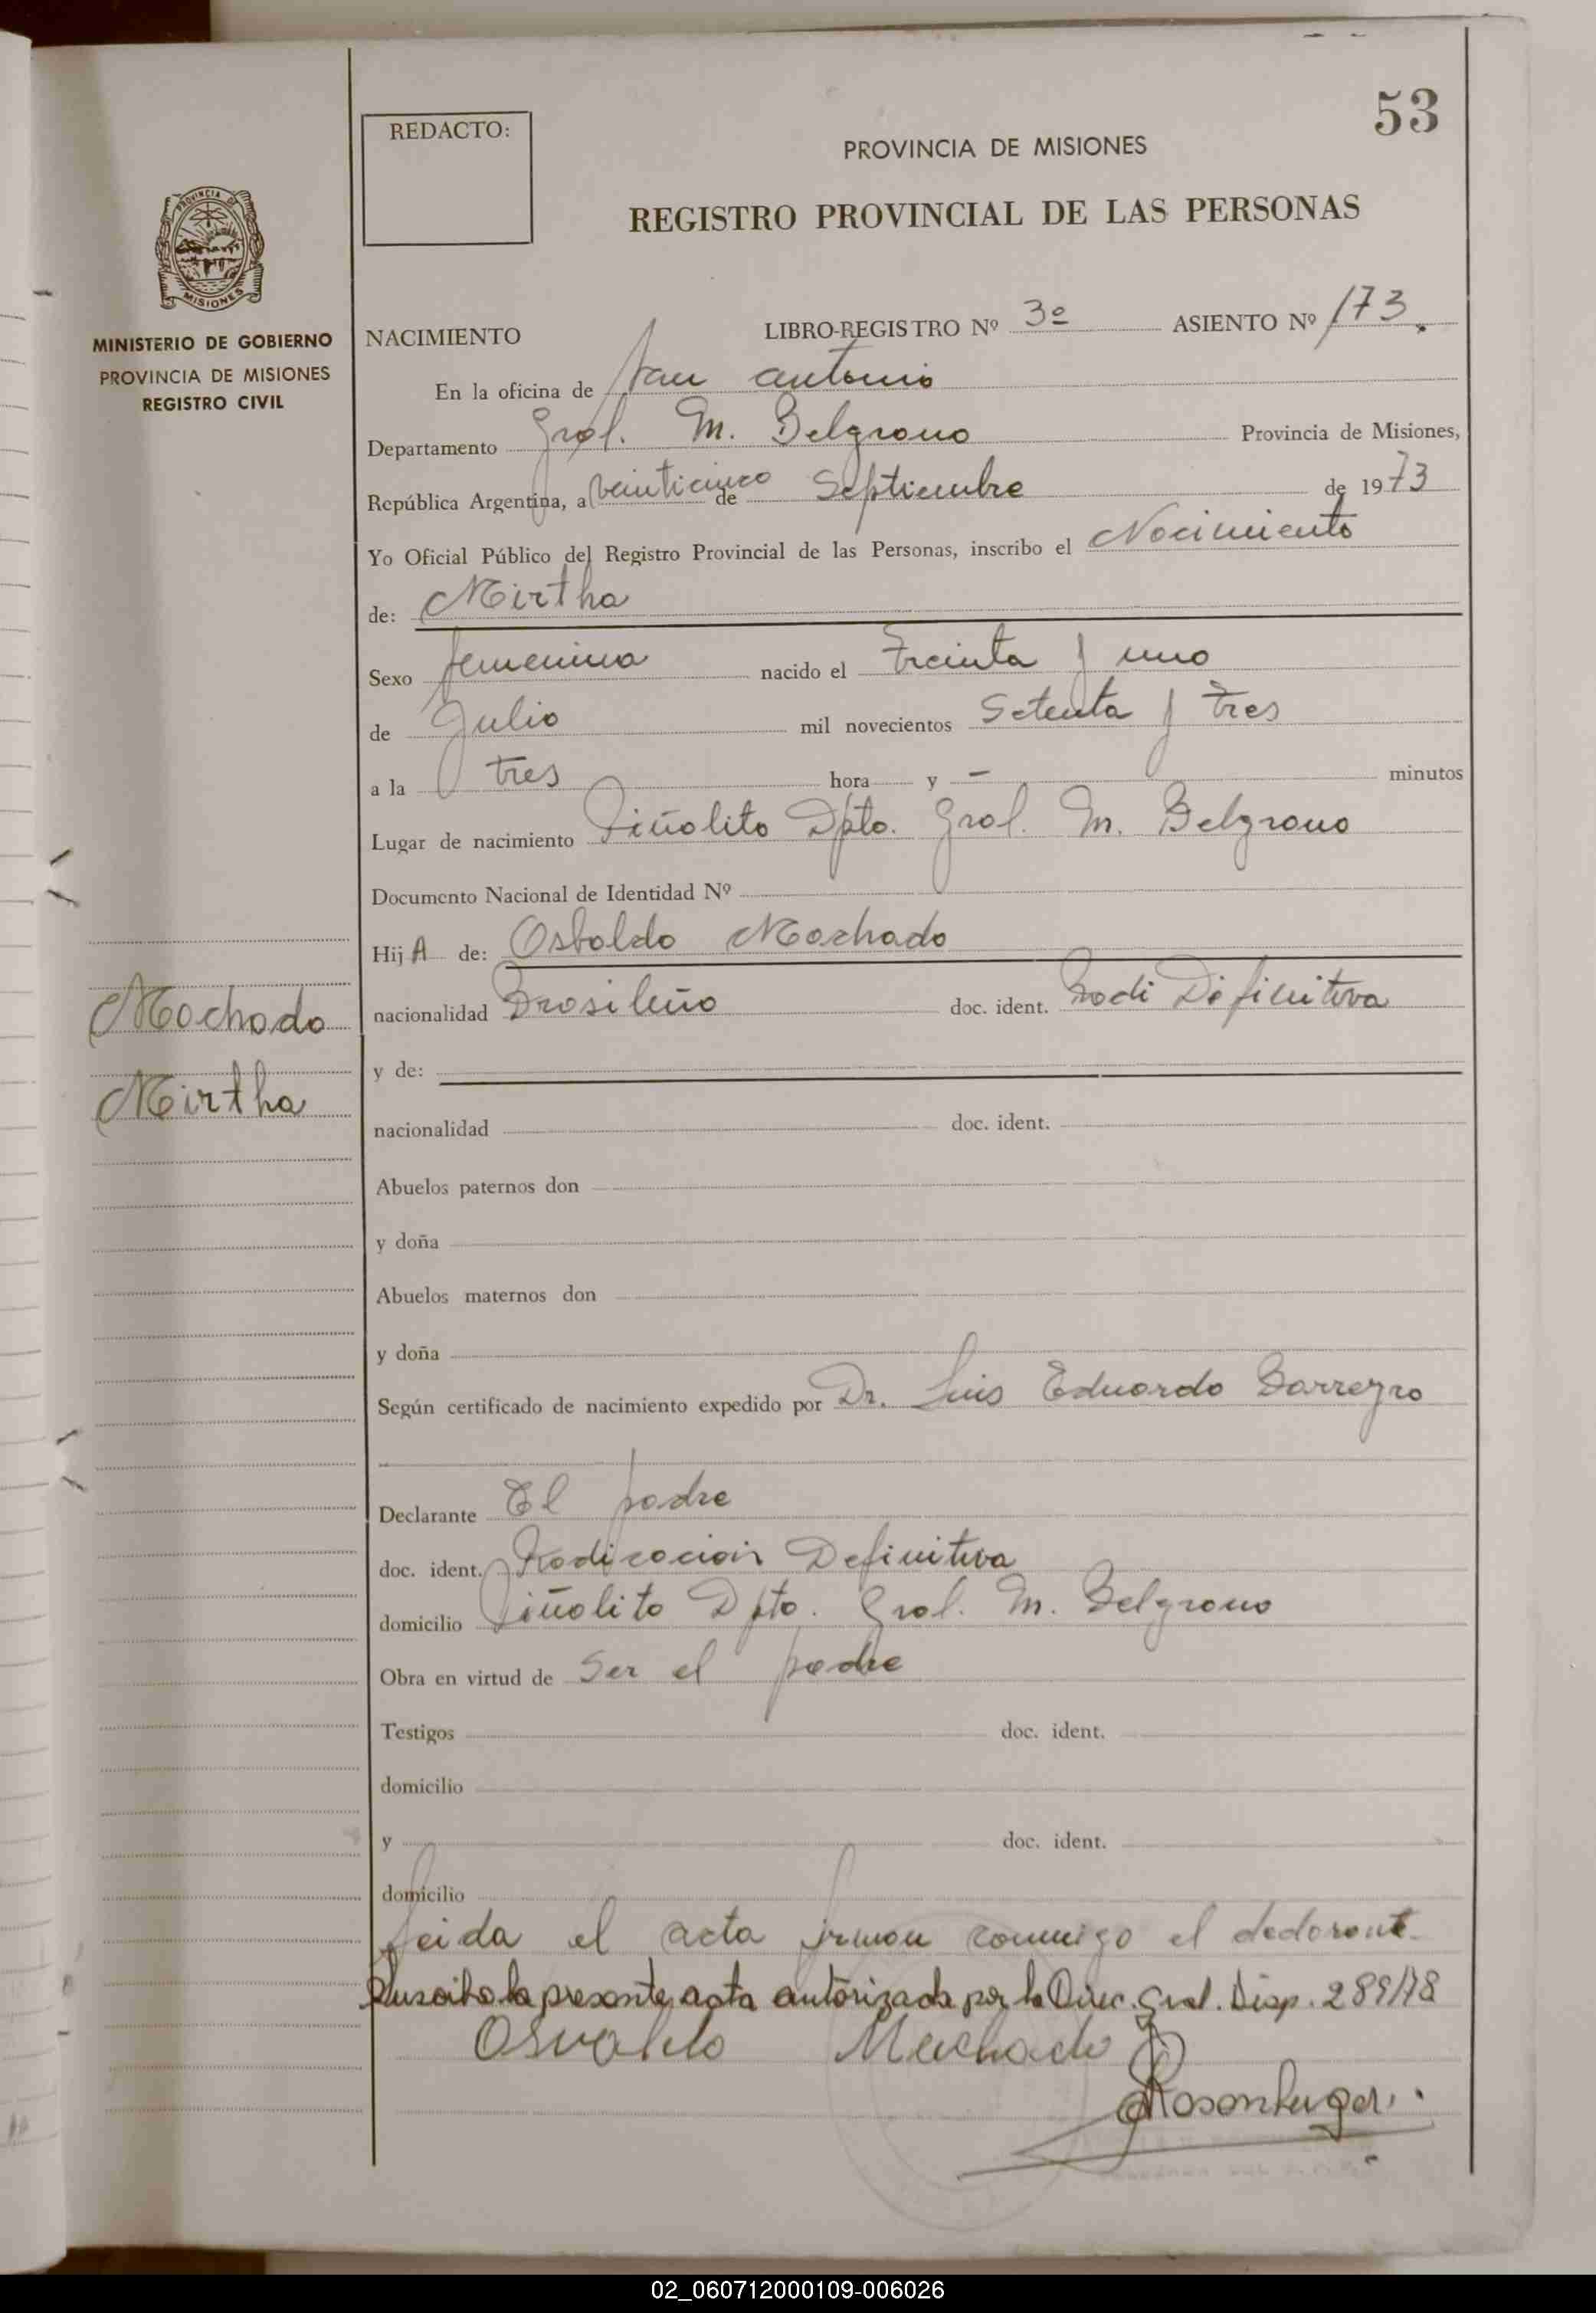 53
REDACTO:
PROVINCIA DE MISIONES
REGISTRO PROVINCIAL DE LAS PERSONAS
PROVINCIA DE
MISIONES
MINISTERIO DE GOBIERNO
PROVINCIA DE MISIONES
REGISTRO CIVIL
NACIMIENTO LIBRO-REGISTRO Nº 3º ASIENTO Nº 173.
En la oficina de San Antonio
Departamento Gral. M. Belgrano Provincia de Misiones,
República Argentina, a veinticinco de Septiembre de 1973
Yo Oficial Público del Registro Provincial de las Personas, inscribo el Nacimiento
de: Mirtha
Sexo femenina nacido el treinta y uno
de Julio mil novecientos Setenta y tres
a la tres hora y - minutos
Lugar de nacimiento Piñalito Dpto. Gral. M. Belgrano
Documento Nacional de Identidad Nº
Hij A de: Osbaldo Machado
nacionalidad Brasileño doc. ident. Radi Definitiva
y de:
nacionalidad doc. ident.
Machado
Mirtha
Abuelos paternos don
y doña
Abuelos maternos don
y doña
Según certificado de nacimiento expedido por Dr. Luis Eduardo Barreyro
Declarante El padre
doc. ident. Radicación Definitiva
domicilio Piñalito Dpto. Gral. M. Belgrano
Obra en virtud de Ser el padre
Testigos doc. ident.
domicilio
y doc. ident.
domicilio
Leida el acta firman conmigo el declarante
Suscribo la presente acta autorizada por la Direc. Gral. Disp. 289/78
Osvaldo Machado
02_060712000109-006026